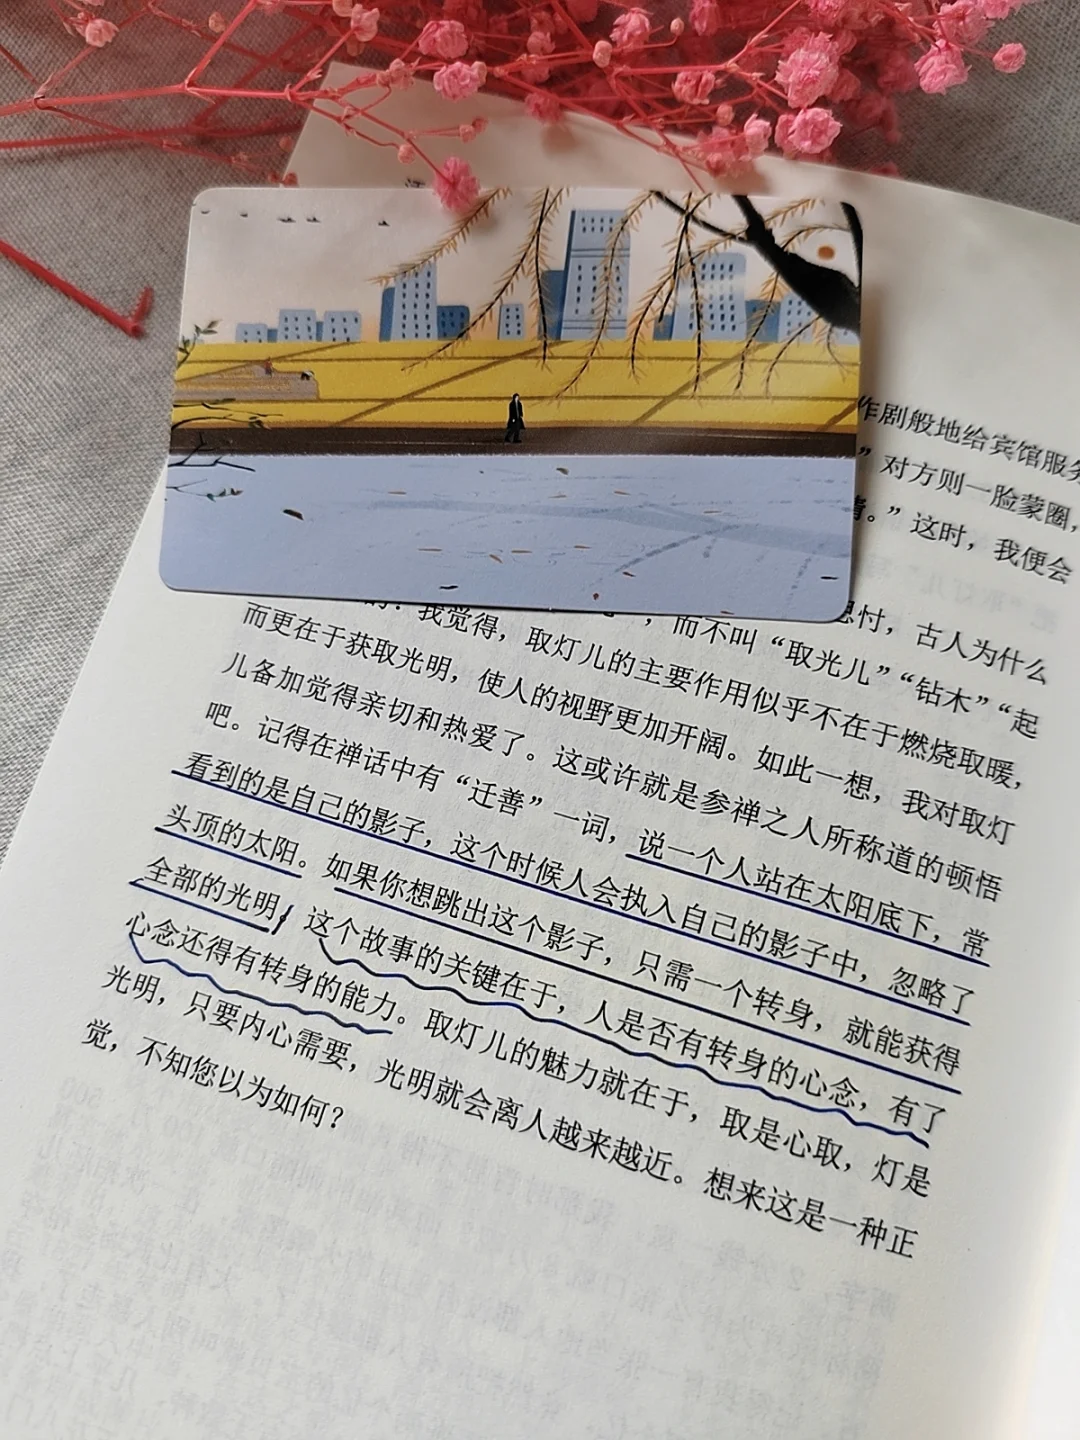 作剧般地给宾馆服务
”对方则一脸蒙圈，
情。”这时，我便会
忖，古人为什么
，而不叫“取光儿”“钻木”“起
我觉得，取灯儿的主要作用似乎不在于燃烧取暖，
而更在于获取光明，使人的视野更加开阔。如此一想，我对取灯
儿备加觉得亲切和热爱了。这或许就是参禅之人所称道的顿悟
吧。记得在禅话中有“迁善”一词，说一个人站在太阳底下，常
看到的是自己的影子，这个时候人会执入自己的影子中，忽略了
头顶的太阳。如果你想跳出这个影子，只需一个转身，就能获得
全部的光明。这个故事的关键在于，人是否有转身的心念，有了
心念还得有转身的能力。取灯儿的魅力就在于，取是心取，灯是
光明，只要内心需要，光明就会离人越来越近。想来这是一种正
觉，不知您以为如何？